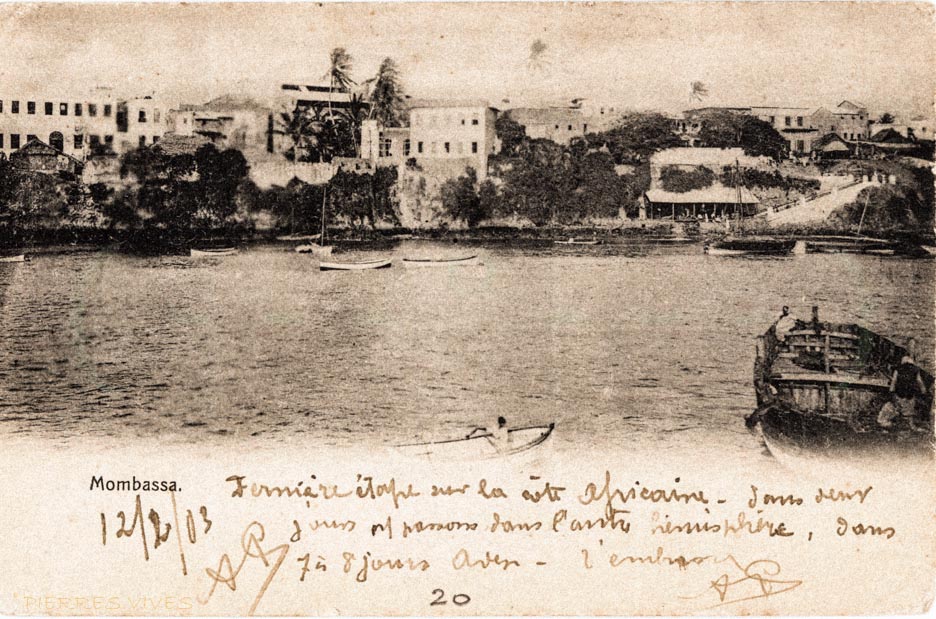 Mombassa.
Dernière étape sur la côte Africaine - dans deux
12/2/03
jours passons dans l'autre hémisphère, dans
7 à 8 jours Aden -
AR
20
PIERRES VIVES